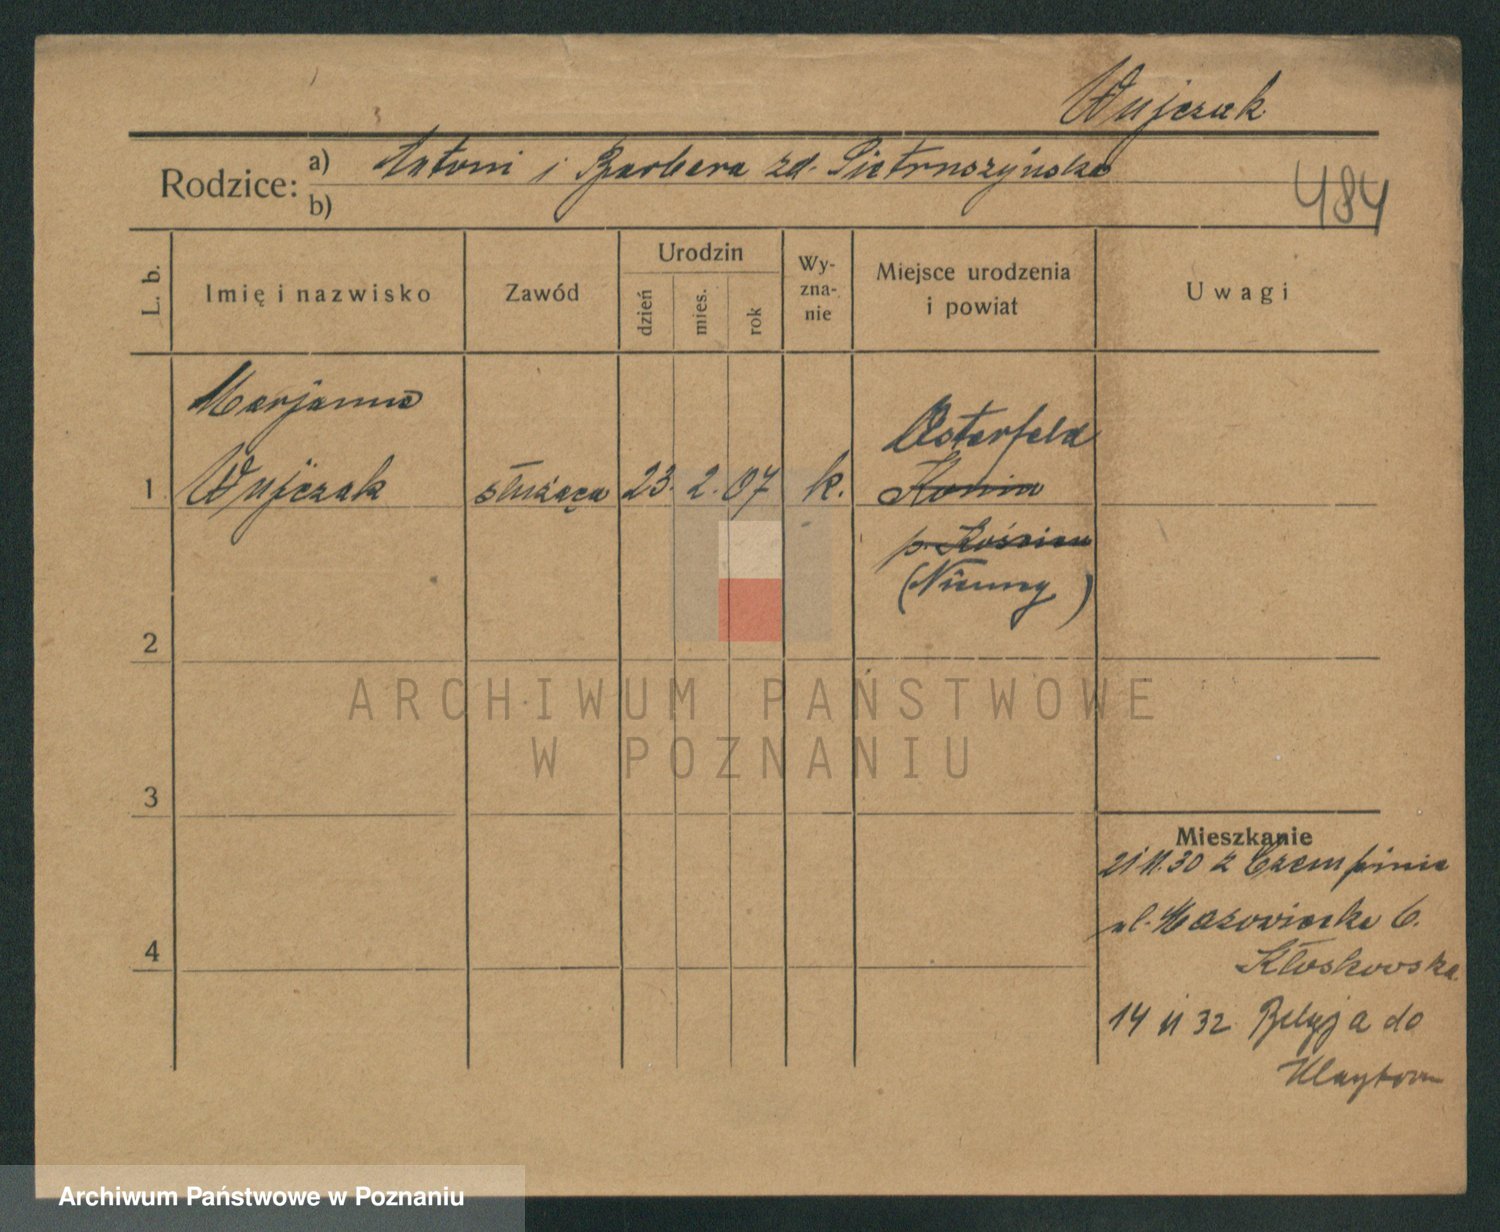 Wujczak
Rodzice: a) Antoni i Barbara zd. Pietruszyńska
b)
484
L. b.
Imię i nazwisko
Zawód
Urodzin
dzień
mies.
rok
Wy-
zna-
nie
Miejsce urodzenia
i powiat
Uwagi
Marjanna
Osterfeld
1 Wujczak służąca 23. 2. 07 k. Konin
p. Kościan
(Niemcy)
2
ARCHIWUM PAŃSTWOWE
W POZNANIU
3
Mieszkanie
21.11.30 z Czempinia
ul. Mazowiecka 6.
4
Kłoskowska
14 11 32 Belgja do
Archiwum Państwowe w Poznaniu